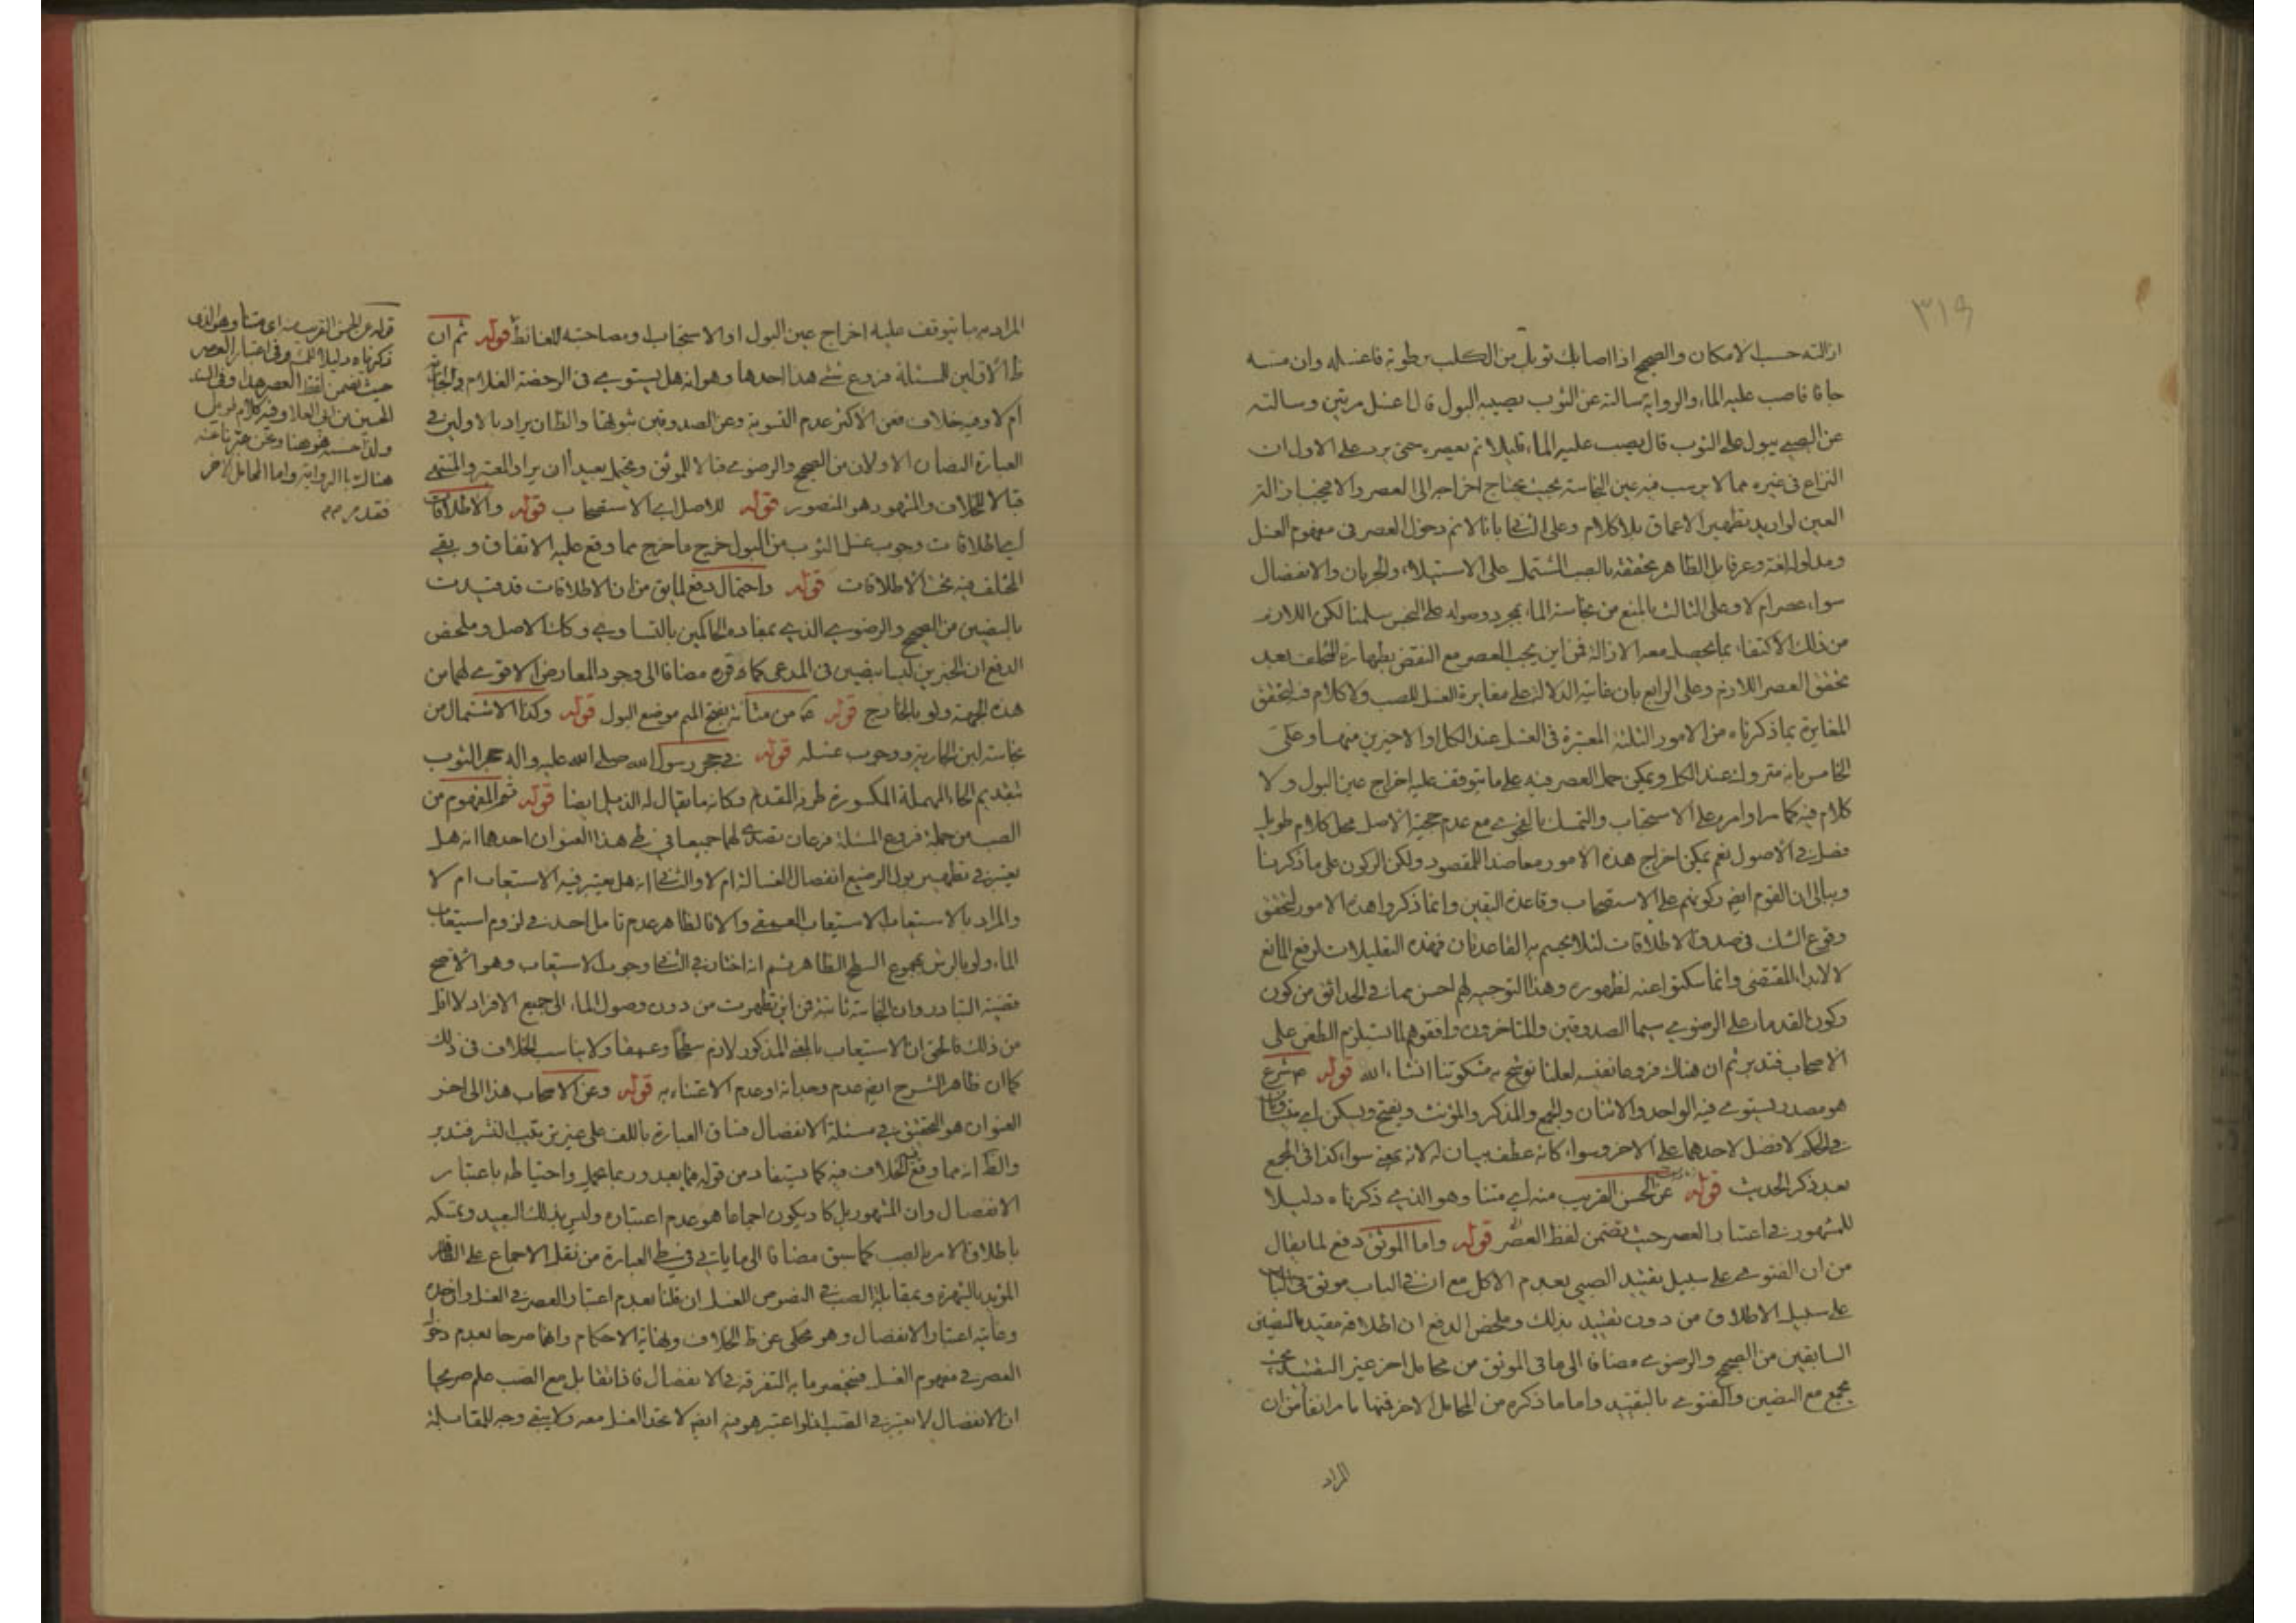 ٣١٩
ازالته حسب الامكان والصحيح اذا اصابك ثوبك من الكلب رطوبة فاغسله وان مسه
جافا فاصب عليه الماء والرواية سالته عن الثوب يصيبه البول قال اغسل مرتين وسالته
عن الصبي يبول على الثوب قال يصب عليه الماء قليلا ثم يعصره حتى يرد على الاول ان
النزاع في غيره مما لا يرسب فيه عين النجاسة بحيث يحتاج اخراجه الى العصر والا فيجب ازالة
العين لو اريد تطهير الاعماق بلا كلام وعلى الثاني بانا لا نم دخول العصر في مفهوم الغسل
ومدلوله لغة وعرفا بل الظاهر تحققه بالصب المشتمل على الاستيلاء والجريان والانفصال
سواء عصر ام لا وعلى الثالث بالمنع من نجاسة الماء بمجرد وصوله على النجس سلمنا لكن اللازم
من ذلك الاكتفاء بما يحصل معه الازالة فمن اين يجب العصر مع النقض بطهارة المتخلف بعد
تحقق العصر اللازم وعلى الرابع بان غايته الدلالة على مغايرة الغسل للصب ولا كلام فيه لتحقق
المغايرة بما ذكرناه من الامور الثلثة المعتبرة في الغسل عند الكل او الاخيرين منها وعلى
الخامس بانه متروك عند الكل ويمكن حمل العصر فيه على ما يتوقف عليه اخراج عين البول ولا
كلام فيه كما مر او امره على الاستحباب والتمسك بالفحوى مع عدم حجية الاصل محل كلام طويل
فصل في الاصول نعم يمكن اخراج هذه الامور معاضدا للمقصود ولكن الركون على ما ذكرنا
وببالي ان القوم ايضا ركونهم على الاستصحاب وقاعدة اليقين وانما ذكروا هذه الامور لتحقق
وقوع الشك في صدق الاطلاقات لئلا يحسم به القاعدتان فهذه التعليلات لرفع المانع
لا لابداء المقتضي وانما سكتوا عنه لظهوره وهذا التوجيه لهم احسن مما في الحدائق من كون
ركون القدماء على الرضوي سيما الصدوقين والمتاخرون وافقوهم لما استلزم الطعن على
الاصحاب فتدبر ثم ان هناك فروعا نفيسة لعلنا نوشح به مشكوتنا انشاء الله قوله ص شرع
هو مصدر يستوي فيه الواحد والاثنان والجمع والمذكر والمؤنث ويفتح ويسكن اي متساويان
في الحكم لا فضل لاحدهما على الاخر وسواء كانه عطف بيان له لانه بمعنى سواء كذا في المجمع
بعد ذكر الحديث قوله عن الحسن القريب منه اي متنا وهو الذي ذكرناه دليلا
للمشهور في اعتبار العصر حيث تضمن لفظ العصر قوله واما الموثق دفع لما يقال
من ان الفتوى على سبيل تقييد الصبي بعدم الاكل مع ان في الباب موثق في الباب
على سبيل الاطلاق من دون تقييد بذلك وملخص الدفع ان اطلاقه مقيد بالنصين
السابقين من الصحيح والرضوي مضافا الى ما في الموثق من محامل اخر غير التقييد بحيث
يجمع مع النصين والفتوى بالتقييد واما ما ذكره من المحامل الاخر فمنها ما مر انفا من ان
المراد
المراد به ما يتوقف عليه اخراج عين البول او الاستحباب او مصاحبته للغائط قوله ثم ان
ظ الاولين للمسئلة فروع شتى هذا احدها وهو انه هل يستوي في الرخصة الغلام والجارية
ام لا وفيه خلاف فعن الاكثر عدم التسوية وعن الصدوقين ثبوتها والظ ان يراد بالاولين في
العبارة النصان الاولان من الصحيح والرضوي قبالا للموثق ويحتمل بعيدا ان يراد المعتبر والمنتهى
قبالا للخلاف والمشهور هو المنصور قوله للاصل اي الاستصحاب قوله والاطلاقات
اي اطلاقات وجوب غسل الثوب من البول خرج ما خرج مما وقع عليه الاتفاق وبقي
المختلف فيه تحت الاطلاقات قوله واحتمال دفع لما يق من ان الاطلاقات قد قيدت
بالنصين من الصحيح والرضوي الذي بمفاده الحاكمين بالتساوي وكذا الاصل وملخص
الدفع ان الخبرين ليسا بنصين في المدعى كما قرره مضافا الى وجود المعارض الاقوى لهما من
هذه الجهة ولو بالخارج قوله ع من مثانة بفتح الميم موضع البول قوله وكذا الاشتمال من
نجاسة لبن الجارية ووجوب غسله قوله في حجر رسول الله صلى الله عليه واله حجر الثوب
بتقديم الحاء المهملة المكسورة طرفه المقدم وكانه ما يقال له الذيل ايضا قوله ثم المفهوم من
الصب من جملة فروع المسئلة فرعان تصدى لهما جميعا في طي هذا العنوان احدهما انه هل
يعتبر في تطهير بول الرضيع انفصال الغسالة ام لا والثاني انه هل يعتبر فيه الاستيعاب ام لا
والمراد بالاستيعاب الاستيعاب العمقي والا فالظاهر عدم تامل احد في لزوم استيعاب
الماء ولو بالرش بمجموع السطح الظاهر ثم انه اختار في الثاني وجوب الاستيعاب وهو الاصح
قضية التبادر وان النجاسة ثابتة فمن اين تطهرت من دون وصول الماء الى جميع الافراد لا اقل
من ذلك فالحق ان الاستيعاب بالمعنى المذكور لازم سطحا وعمقا ولا يناسب الخلاف في ذلك
كما ان ظاهر الشرح ايضا عدم وجدانه او عدم الاعتناء به قوله وعن الاصحاب هذا الى اخر
العنوان هو التحقيق في مسئلة الانفصال فساق العبارة باللف على غير ترتيب النشر فتدبر
والظ انه مما وقع الخلاف فيه كما يستفاد من قوله فيما بعد وربما يحمل واحتياطه باعتبار
الانفصال وان المشهور بل كاد يكون اجماعا هو عدم اعتباره وليس بذلك البعيد وتمسكه
باطلاق الامر بالصب كما سبق مضافا الى ما ياتي في طي العبارة من نقل الاجماع على الظاهر
المؤيد بالشهرة وبمقابلة الصب في النصوص الغسل ان قلنا بعدم اعتبار العصر في الغسل وان حده
وغايته اعتبار الانفصال وهو محكي عن ظ الخلاف ونهاية الاحكام وانهما صرحا بعدم دخول
العصر في مفهوم الغسل فينحصر ما به التفرقة في الانفصال فاذا تقابل مع الصب علم صريحا
ان الانفصال لا يعتبر في الصب فلو اعتبر هو فيه ايضا لاتحد الغسل معه ولا يبقى وجه للمقابلة
قوله عن الحسن القريب منه اي متنا وهو الذي
ذكرناه دليلا لك وفي اعتبار العصر
حيث تضمن لفظ العصر هذا وفي السند
الحسين بن ابي العلا وفيه كلام طويل
هناك بالرواية واما المحامل الاخر
فقد مر م م